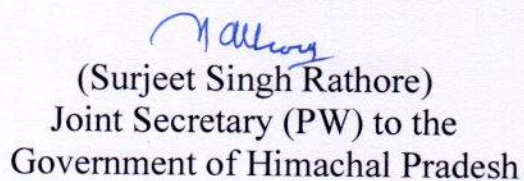 (Surjeet Singh Rathore)
Joint Secretary (PW) to the
Government of Himachal Pradesh